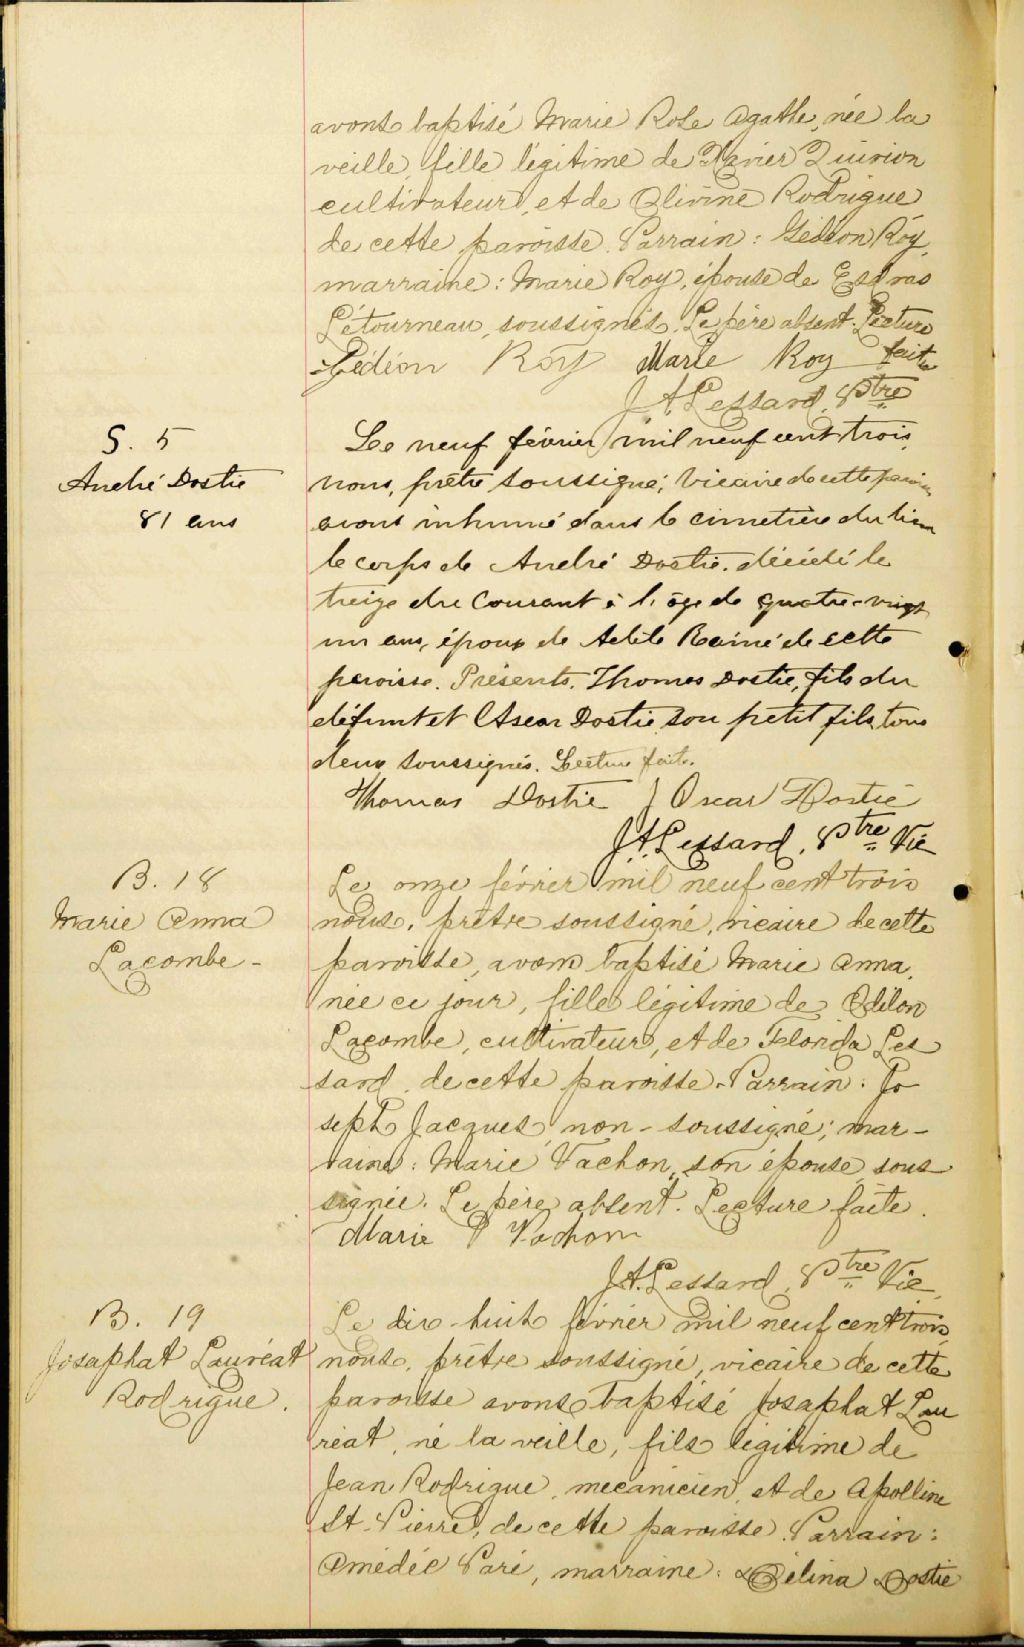 avons baptisé Marie Rose Agathe, née la
veille, fille légitime de Xavier Quirion
cultivateur, et de Olivine Rodrigue
de cette paroisse. Parrain: Gédéon Roy,
marraine: Marie Roy, épouse de Esdras
Létourneau, soussignés. Le père absent. Lecture
faite
Gédéon Roy Marie Roy
J A Lessard, Ptre
S. 5
André Dostie
81 ans
Le neuf février mil neuf cent trois,
nous, prêtre soussigné, vicaire de cette paroisse
avons inhumé dans le cimetière du lieu
le corps de André Dostie, décédé le
treize du courant à l'âge de quatre-vingt
un ans, époux de de cette
paroisse. Présents. Thomas Dostie, fils du
défunt et Oscar Dostie son petit fils, tous
deux soussignés. Lecture faite.
Thomas Dostie J Oscar Dostie
J.A. Lessard, Ptre Vic
B. 18
Marie Anna
Lacombe -
Le onze février mil neuf cent trois
nous, prêtre soussigné, vicaire de cette
paroisse, avons baptisé Marie Anna,
née ce jour, fille légitime de Odilon
Lacombe, cultivateur, et de Florida Les
sard, de cette paroisse. Parrain: Jo
seph Jacques non-soussigné; mar-
raine: Marie Vachon, son épouse, sous
signée. Le père absent. Lecture faite.
Marie Vachon
J.A. Lessard, Ptre Vic
B. 19
Josaphat Lauréat
Rodrigue.
Le dix-huit février mil neuf cent trois,
nous, prêtre soussigné, vicaire de cette
paroisse avons baptisé Josaphat Lau
réat, né la veille, fils légitime de
Jean Rodrigue, mécanicien, et de Apolline
St-Pierre, de cette paroisse. Parrain:
Amédée Paré, marraine: Délina Dostie